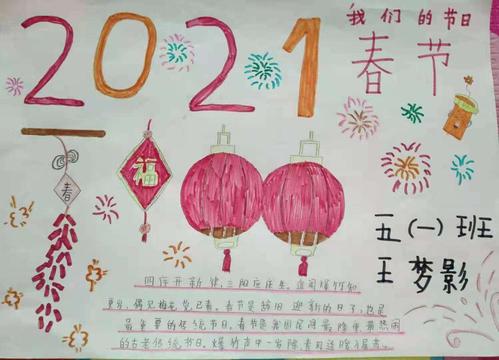 2021
我们的节日
春节
福
春
五(一)班
王梦影
四序开新律,三阳应庄来,
春节是辞旧迎新的日子,也是
最重要的传统节日。春节是我国民间最隆重最热闹
的古老传统节日。爆竹声中一岁除春风送暖